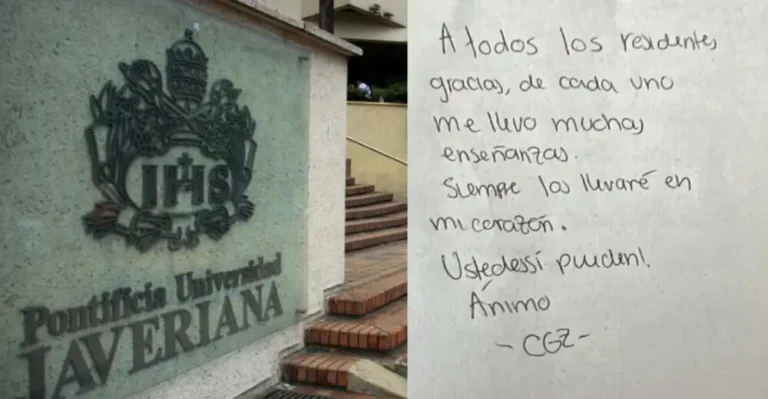 IHS
Pontificia Universidad
JAVERIANA
A todos los residentes,
gracias, de cada uno
me llevo muchas
enseñanzas.
Siempre los llevaré en
mi corazón.
Ustedes sí pueden!
Ánimo
- CGZ -